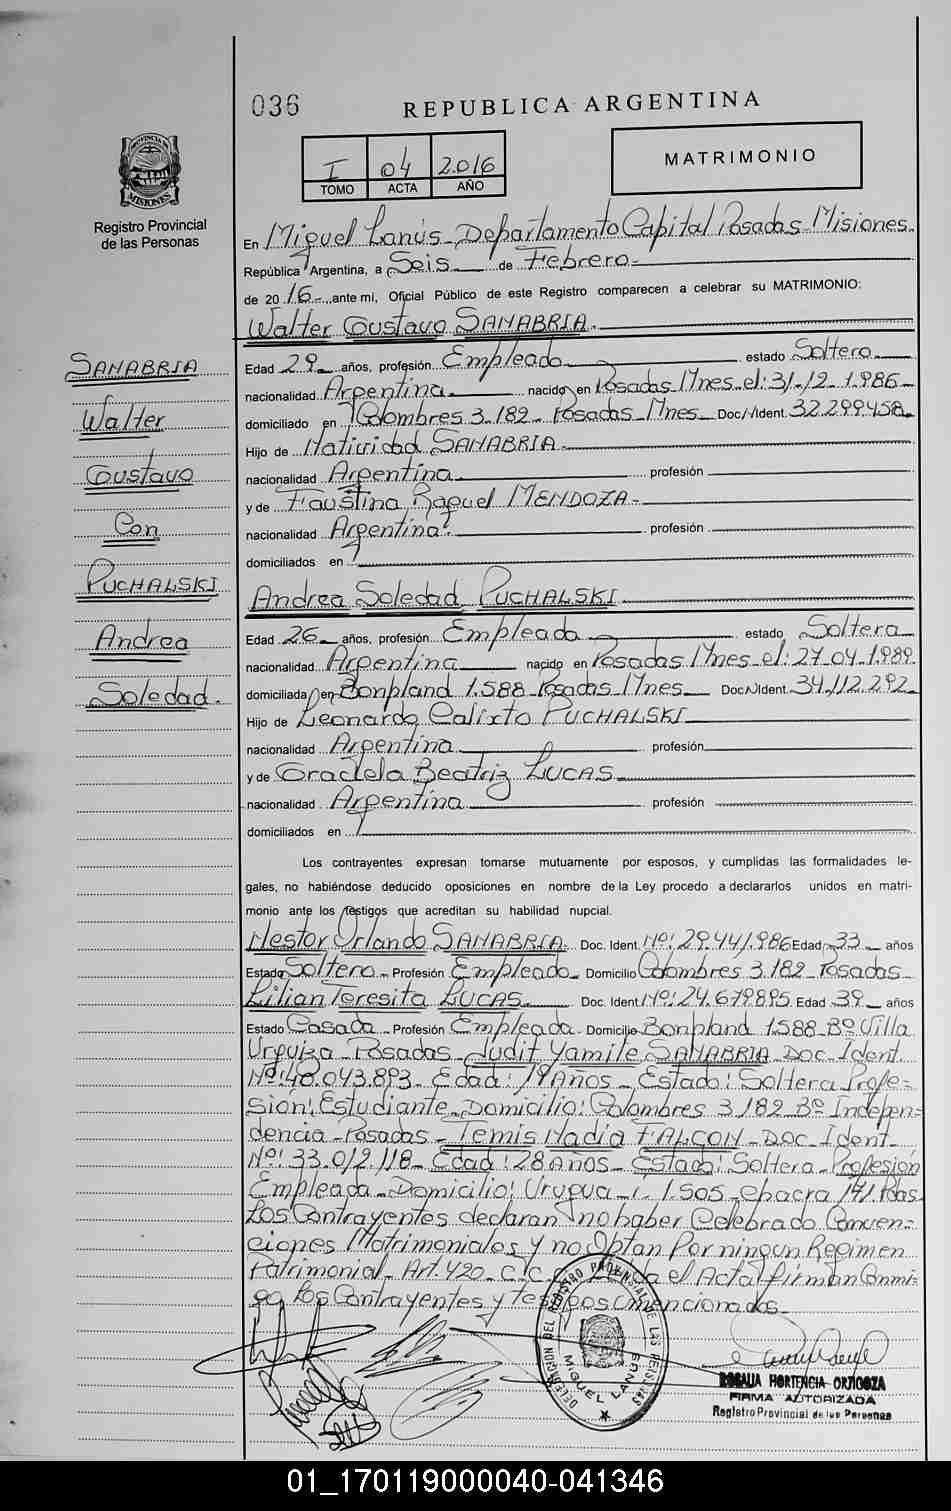 036
REPUBLICA ARGENTINA
I 04 2.016
TOMO ACTA AÑO
MATRIMONIO
PROVINCIA DE MISIONES
Registro Provincial
de las Personas
En Miguel Lanús - Departamento Capital Posadas - Misiones -
República Argentina, a Seis de Febrero -
de 2016 -, ante mi, Oficial Público de este Registro comparecen a celebrar su MATRIMONIO:
Walter Gustavo SANABRIA -
Edad 29 - años, profesión Empleado estado Soltero -
nacionalidad Argentina - nacido en Posadas Mnes. el: 31-12-1.986 -
domiciliado en Colombres 3.182 - Posadas - Mnes - Doc/Ident. 32.299.458 -
Hijo de Natividad SANABRIA -
nacionalidad Argentina profesión
y de Faustina Raquel MENDOZA -
nacionalidad Argentina - profesión
domiciliados en
Andrea Soledad PUCHALSKI
Edad 26 - años, profesión Empleada estado Soltera
nacionalidad Argentina nacido en Posadas Mnes el: 27-04-1.989
domiciliada en Bonpland 1.588 - Posadas Mnes - Doc/Ident. 34.112.292 -
Hijo de Leonardo Calixto PUCHALSKI
nacionalidad Argentina profesión
y de Graciela Beatriz LUCAS
nacionalidad Argentina profesión
domiciliados en
SANABRIA
Walter
Gustavo
Con
PUCHALSKI
Andrea
Soledad.
Los contrayentes expresan tomarse mutuamente por esposos, y cumplidas las formalidades le-
gales, no habiéndose deducido oposiciones en nombre de la Ley procedo a declararlos unidos en matri-
monio ante los testigos que acreditan su habilidad nupcial.
Nestor Orlando SANABRIA - Doc. Ident. Nº: 29.441.986 Edad 33 - años
Estado Soltero - Profesión Empleado - Domicilio Colombres 3.182 - Posadas -
Lilian Teresita LUCAS - Doc. Ident. Nº: 24.679.895 Edad 39 - años
Estado Casada - Profesión Empleada - Domicilio Bonpland 1.588 - Bº Villa
Urquiza - Posadas - Judit Yamile SANABRIA - Doc - Ident.
Nº: 40.043.893 - Edad: 19 Años - Estado: Soltera Profe-
sión: Estudiante - Domicilio: Colombres 3.182 Bº Indepen-
dencia - Posadas - Temis Nadia FALCON - Doc - Ident -
Nº: 33.012.118 - Edad: 28 Años - Estado: Soltera - Profesión
Empleada - Domicilio: 1.505 - chacra 141. Pdas.
Los Contrayentes declaran no haber Celebrado Conven-
ciones Matrimoniales y no Optan Por ningun Regimen
Patrimonial - Art. 420 - C.C. el Acta firman Conmi-
go Los Contrayentes y Testigos mencionados -
DELEGACION DEL REGISTRO PROVINCIAL DE LAS PERSONAS
MIGUEL LANUS
ROSALIA HORTENCIA ORTIGOZA
FIRMA AUTORIZADA
Registro Provincial de las Personas
01_170119000040-041346